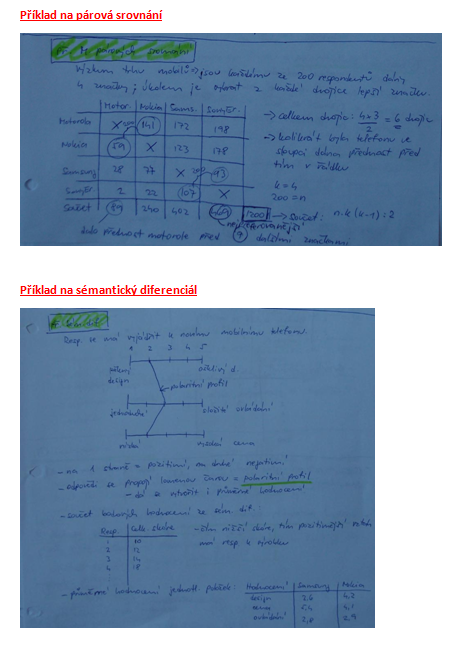 Příklad na párová srovnání
Př. párových srovnání
Výzkum trhu mobilů; jsou každému ze 200 respondentů dány
4 značky; úkolem je vybrat z každé dvojice lepší značku.
Motor. Nokia Sams.
Motorola X 200 141 172 198
Nokia 59 X 123 178
Samsung 28 77 X 200 93
2 22 107 X
Součet 89 240 402 469 1200 → součet: n·k(k-1):2
→ celkem dvojic: 4×3/2 = 6 dvojic
→ kolikrát byla telefonu ve
sloupci dána přednost před
tím v řádku
k = 4
200 = n
nejpreferovanější
dalo přednost motorole před dalšími značkami
Příklad na sémantický diferenciál
Resp. se má vyjádřit k novému mobilnímu telefonu.
1 2 3 4 5
design ošklivý d.
polaritní profil
jednoduché složité ovládání
nízká vysoká cena
- na 1 straně = pozitivní, na druhé negativní
- odpovědi se propojí lomenou čarou = polaritní profil
- dá se vytvořit i průměrné hodnocení
- součet bodových hodnocení ze sém. dif.:
Resp. Celk. skóre
1 10
2 12
3 14
4 18
- čím nižší skóre, tím pozitivnější vztah
má resp. k výrobku
- průměrné hodnocení jednotl. položek:
Hodnocení Samsung Nokia
design 3,6 4,2
cena 4,1
ovládání 2,8 2,9